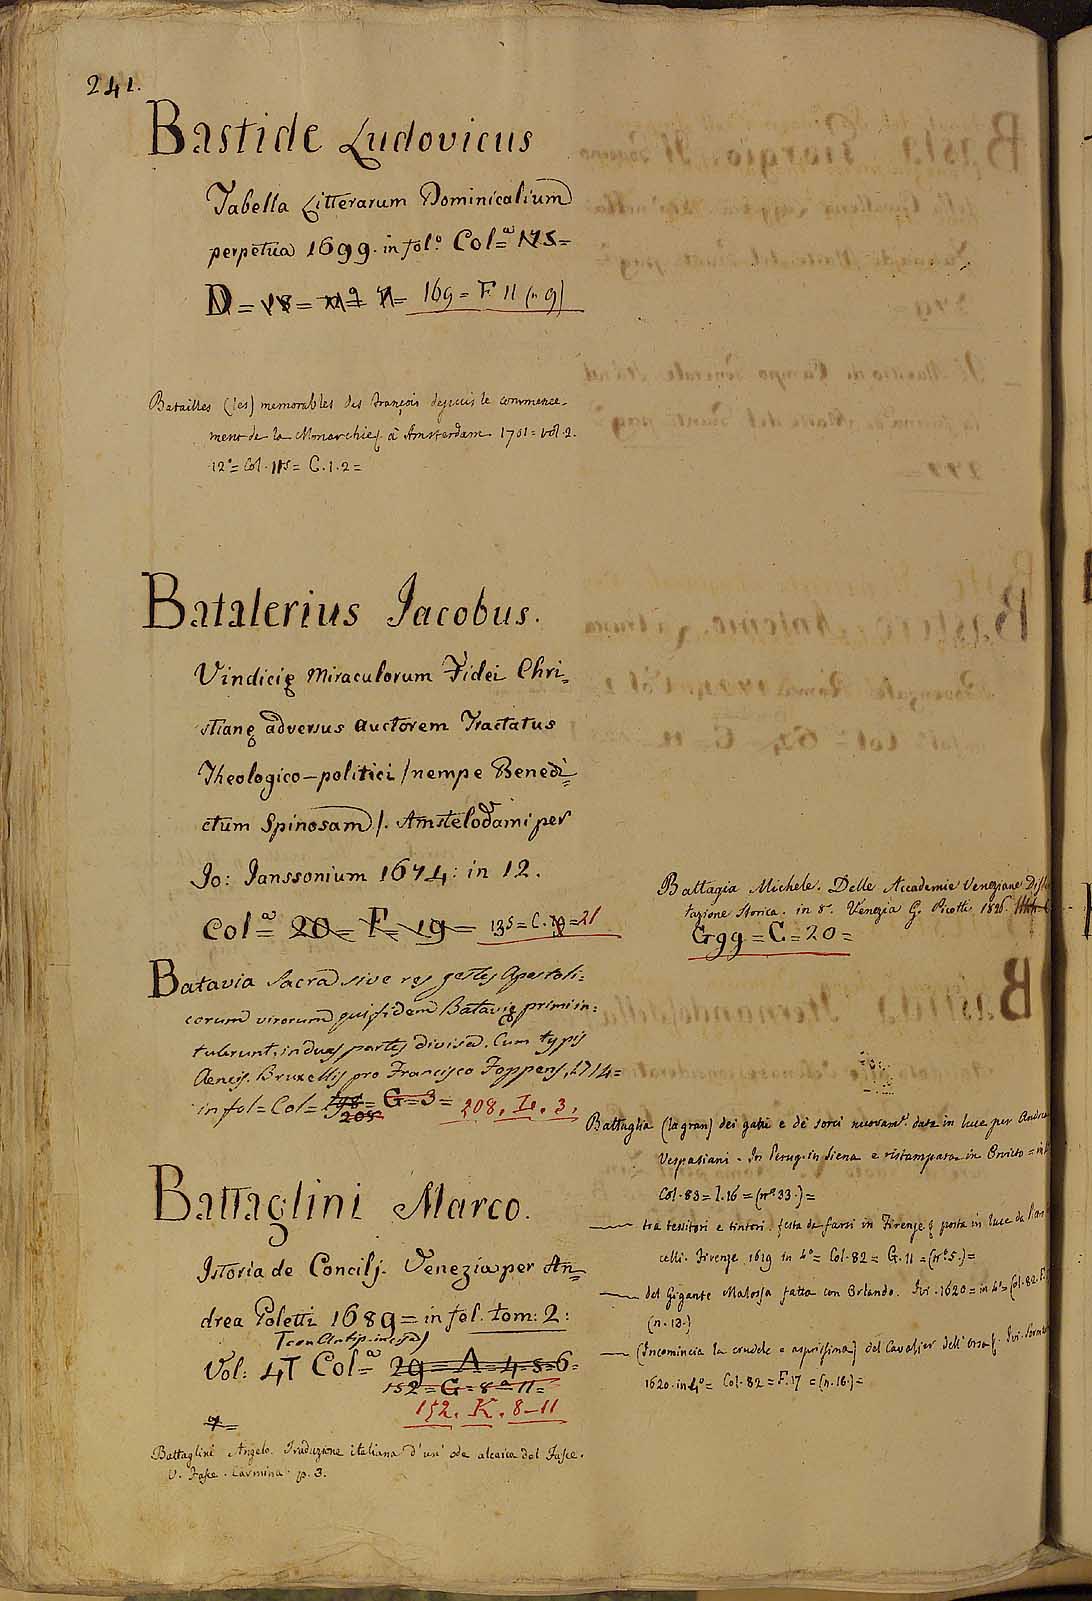 241.
Bastide Ludovicus
Tabella Litterarum Dominicalium
perpetua 1699. in fol.º Col=ª 175=
D = 18 = = 169 = F 11 (n. 9)
Batailles (les) memorables des François depuis le commence-
ment de la Monarchie à Amsterdam 1701 = vol. 2.
12º = Col. 115 = C. 1. 2 =
Batalerius Jacobus.
Vindicię Miraculorum Fidei Chri=
stianę adversus auctorem Tractatus
Theologico-politici /nempe Benedi=
ctum Spinosam/. Amstelodami per
Jo: Janssonium 1674: in 12.
Col=ª 20 = F = 19 = 135 = C. = 21
Batavia Sacra sive res gestę Apostoli=
corum virorum qui fidem Batavię primi in=
tulerunt, in duas partes divisa. Cum typis
Aeneis. Bruxellis pro Francisco Foppens, 1714=
in fol = Col = 198 = G = 3 = 208. L. 3.
208
Battaglini Marco.
Istoria de Concilj. Venezia per An=
drea Poletti 1689 = in fol. tom: 2:
(con Antip. incisa)
Vol: 4 Col=ª 29 = A = 4 = 5 = 6 =
152 = G = 8ª = 11 =
152. K. 8-11
Battaglini Angelo. Traduzione italiana d'un' ode alcaica del
V. Carmina. p. 3.
Battagia Michele. Delle Accademie Veneziane
tazione storica. in 8. Venezia G. Picotti 1826.
Ggg = C = 20 =
Battaglia (la gran) dei gatti e de sorci nuovamᵗ. data in luce per
Vespasiani. In Perug. in Siena e ristampata in Orvieto =
Col. 83 = I. 16 = (nº 33.) =
— tra tessitori e tintori. festa da farsi in Firenze posta in luce da
celli. Firenze 1619 in 4º = Col. 82 = G. 11 = (nº 5.) =
— del Gigante Malossa fatta con Orlando. Ivi. 1620 = in 4º = Col. 82. F.
(n. 13.)
— (Incomincia la crudele e asprissima) del Cavalier dell' Orsa. Ivi.
1620. in 4º = Col. 82 = F. 17 = (n. 16.) =